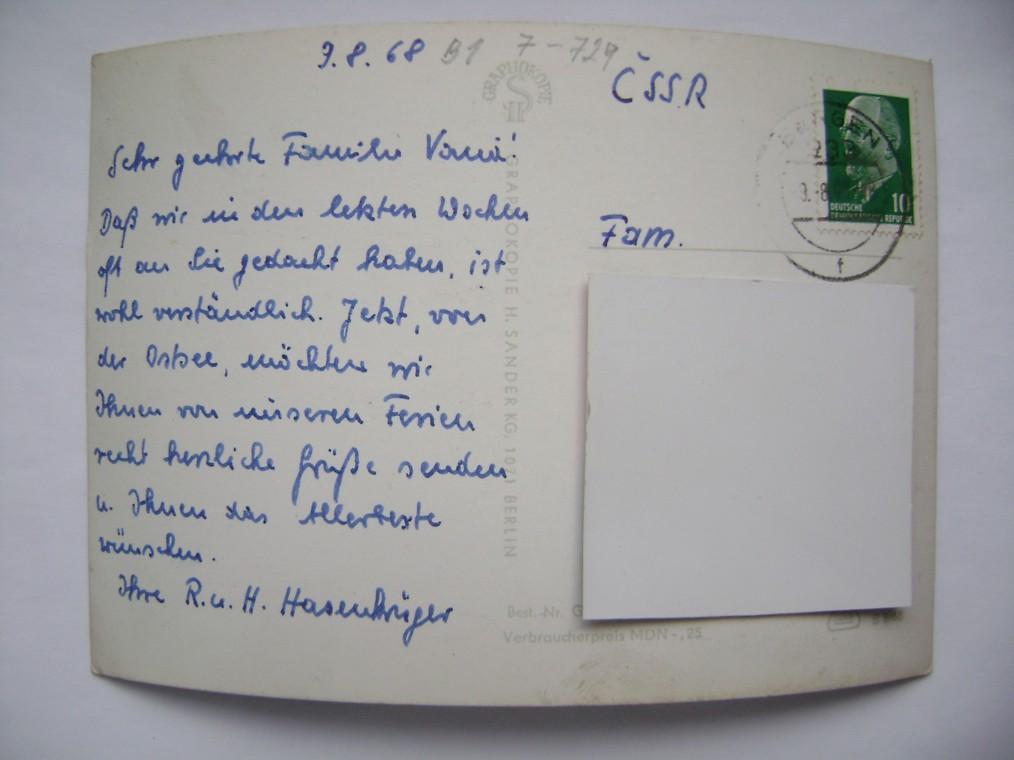 9.8.68 B1 7-729
ČSSR
GRAPHOKOPIE
SH
BERGEN
9.-8
DEUTSCHE
DEMOKRATISCHE REPUBLIK
10
f
Sehr geehrte Familie
Daß wir in den letzten Wochen
oft an Sie gedacht haben, ist
wohl verständlich. Jetzt, von
der Ostsee, möchten wir
Ihnen von unseren Ferien
recht herzliche Grüße senden
u. Ihnen das Allerbeste
wünschen.
Ihre R. u. H. Hasenkrüger
GRAPHOKOPIE H. SANDER KG, 1071 BERLIN
Fam.
Best.-Nr. G
Verbraucherpreis MDN -,25